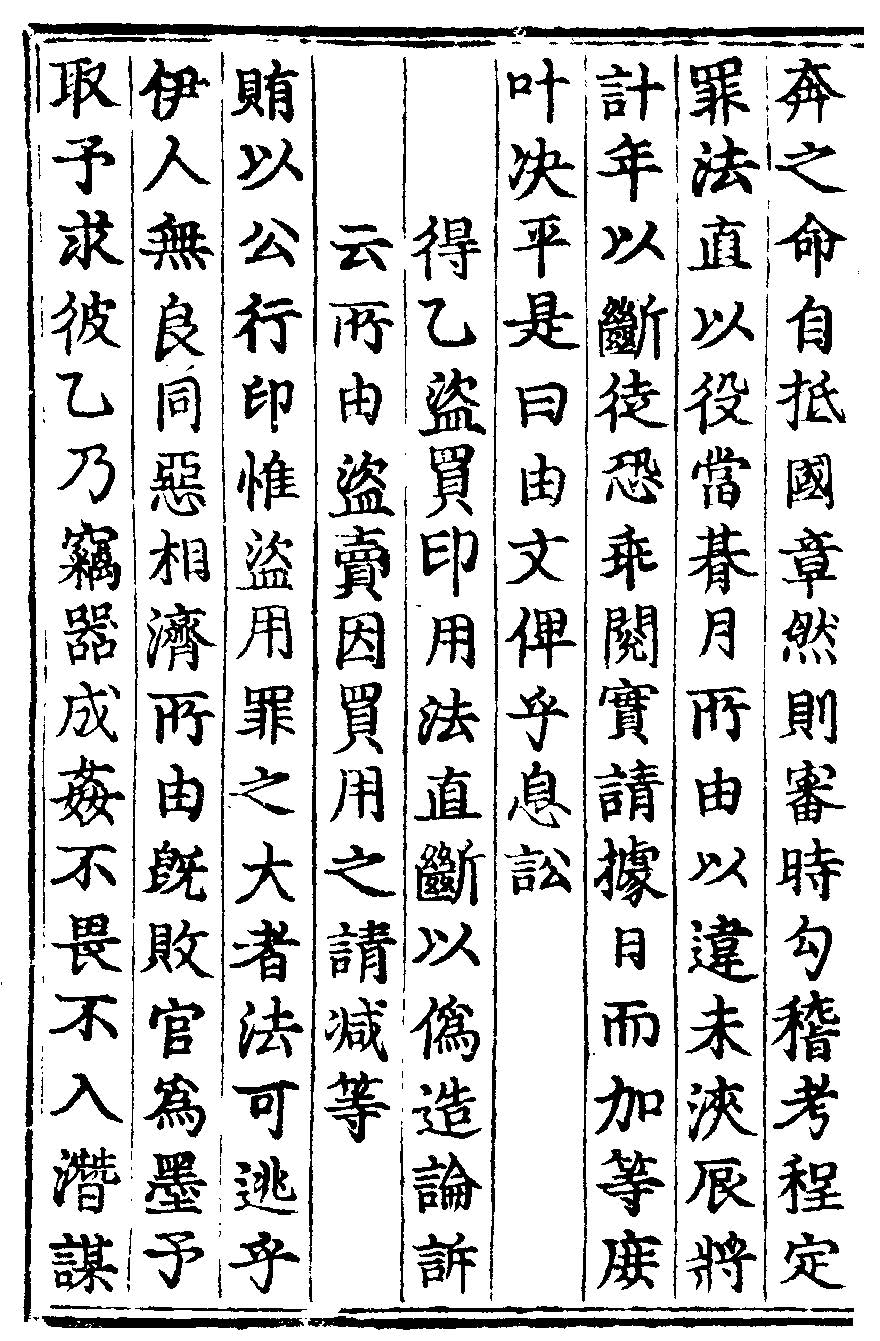 奔之命自抵國章然則審時勾稽考程定
罪法直以役當朞月所由以違未浹辰將
計年以斷徒恐乖閱實請據日而加等庶
叶决平是曰由文俾乎息訟
得乙盜買印用法直斷以僞造論訴
云所由盜賣因買用之請减等
賄以公行印惟盜用罪之大者法可逃乎
伊人無良同惡相濟所由旣敗官爲墨予
取予求彼乙乃竊器成姦不畏不入潛謀